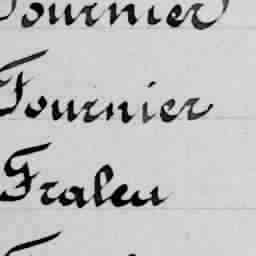 Fournier
Fournier
Fraleu